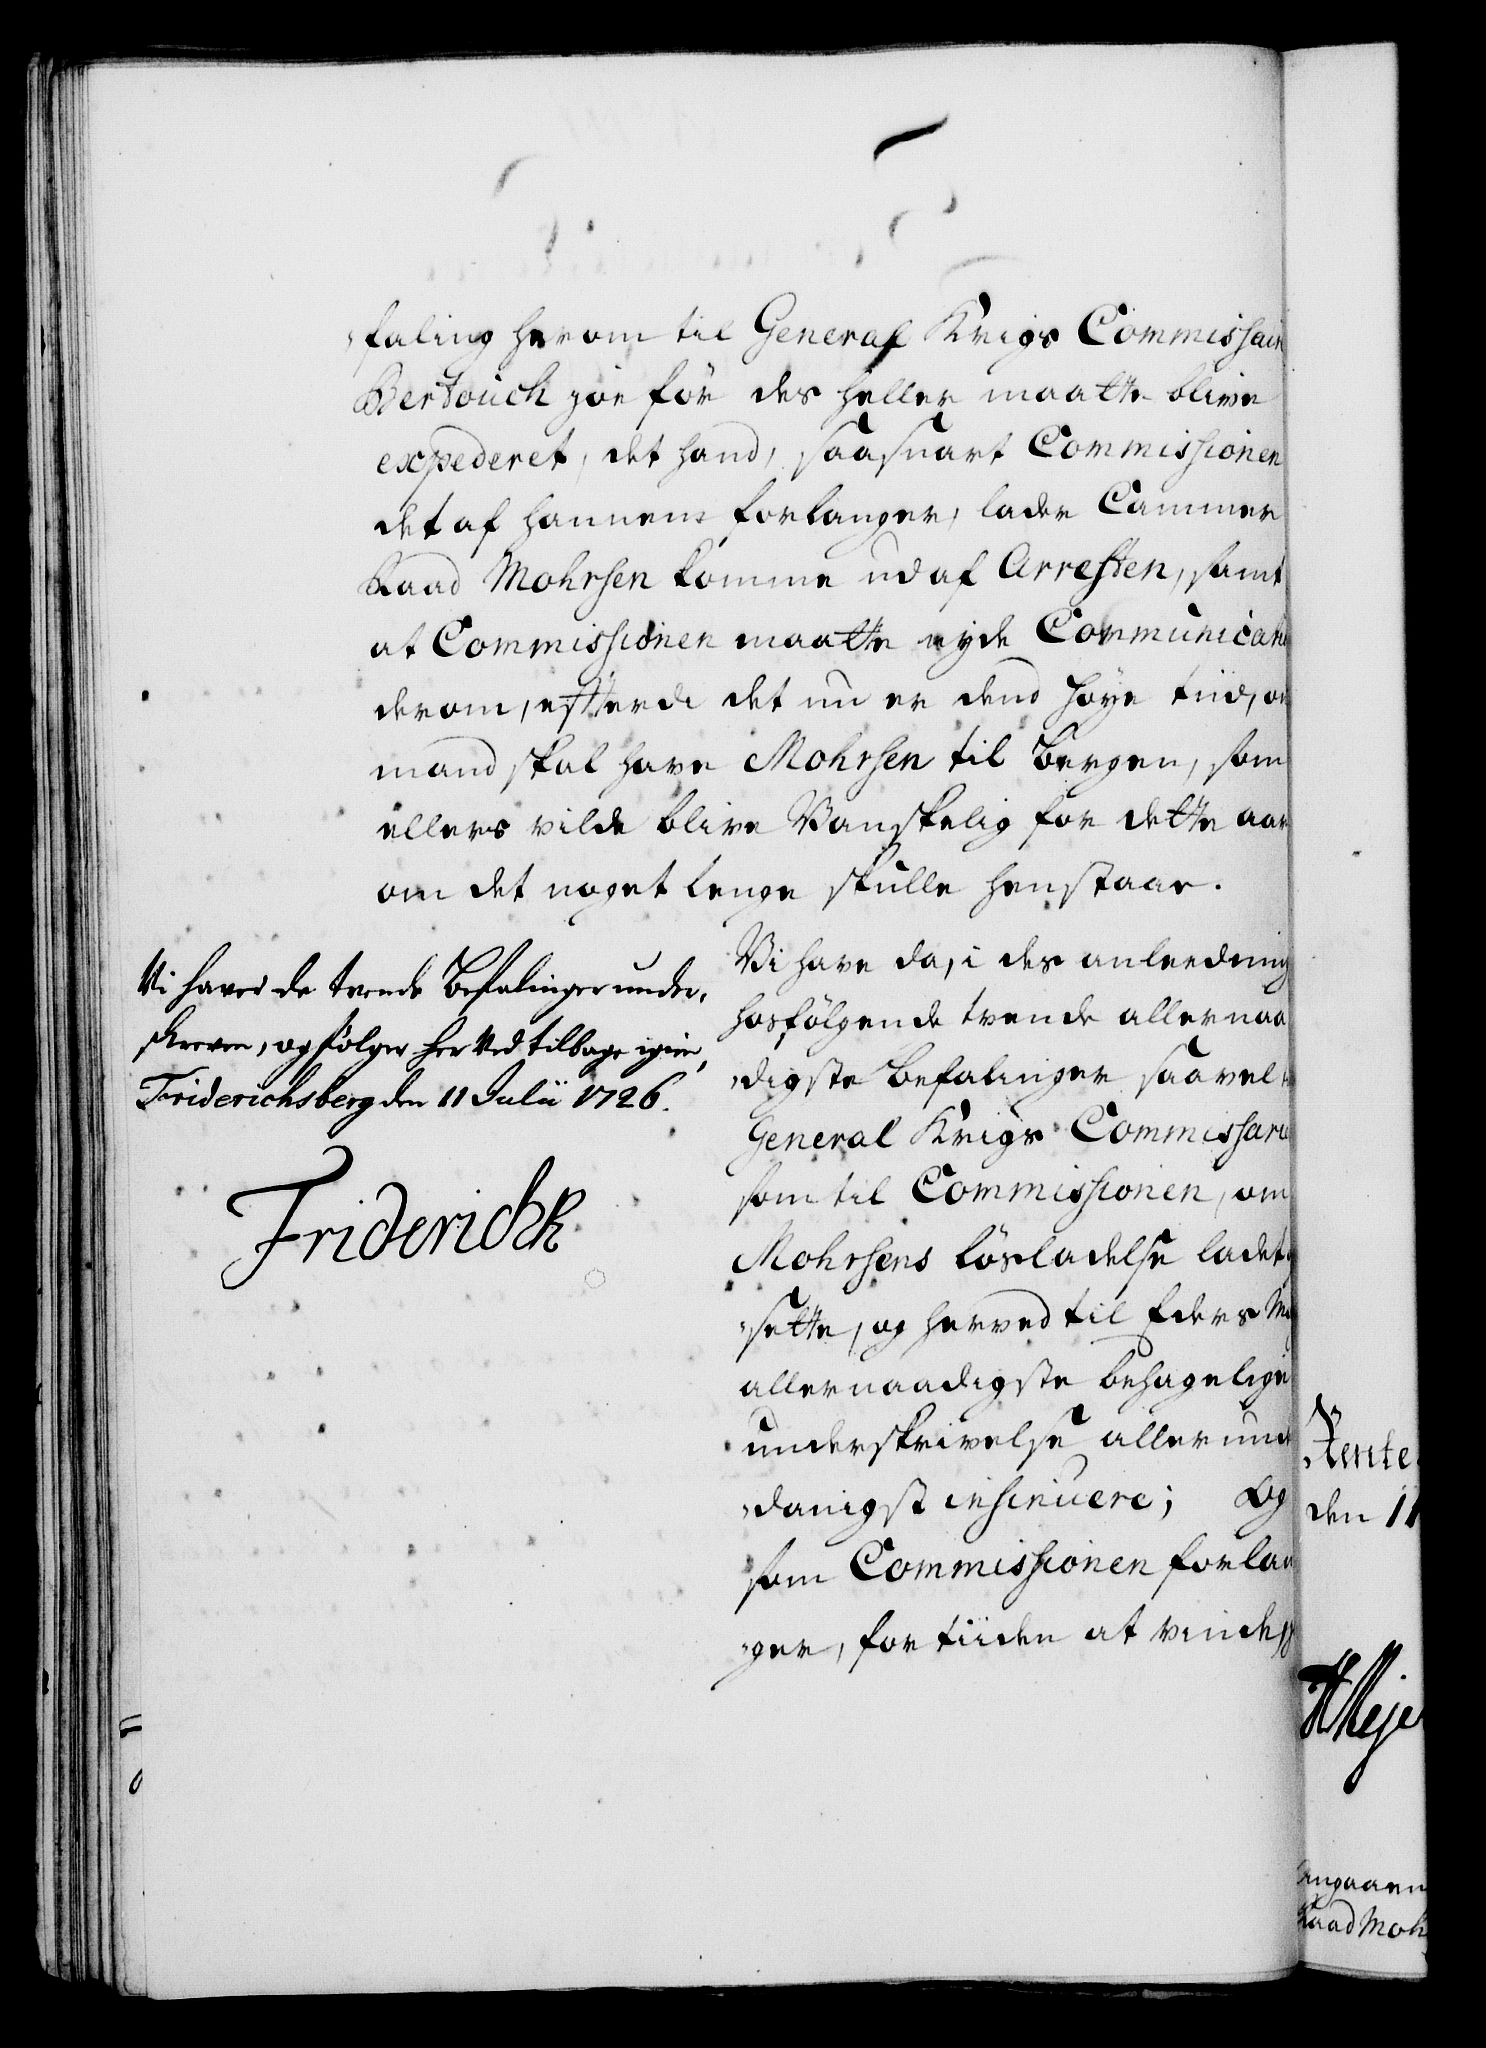 faling herom til General Krigs Commissair
Bertouch joe för des heller maatte blive
expederet, det hand, saasnart Commissionen
det af hannem forlanger, lader Cammer
Raad Mohrsen komme ud af Arresten, samt
at Commissionen maatte nyde Communication
derom, efterdi det nu er dend høye tiid, om
mand skal have Mohrsen til Bergen, som
ellers vilde blive Vanskelig for dette aar
om det noget lenge skulle henstaae.
Vi have da, i des anleedning
hosfölgende tvende allernaa
digste Befalinger saavel
General Krigs Commissari
som til Commissionen, om
Mohrsens løsladelse ladet
sette, og herved til Eders May
allernaadigste behagelige
underskrivelse allerund
danigst insinuere; Og
som Commissionen forlan
ger, for tiiden at vinde,
Vi haver de tvende Befalinger under,
skreven, og følger her Ved tilbage igien,
Friderichsberg den 11 Julii 1726.
FriderichR
Rente
den 11
Meje
Angaaen
Raad Moh